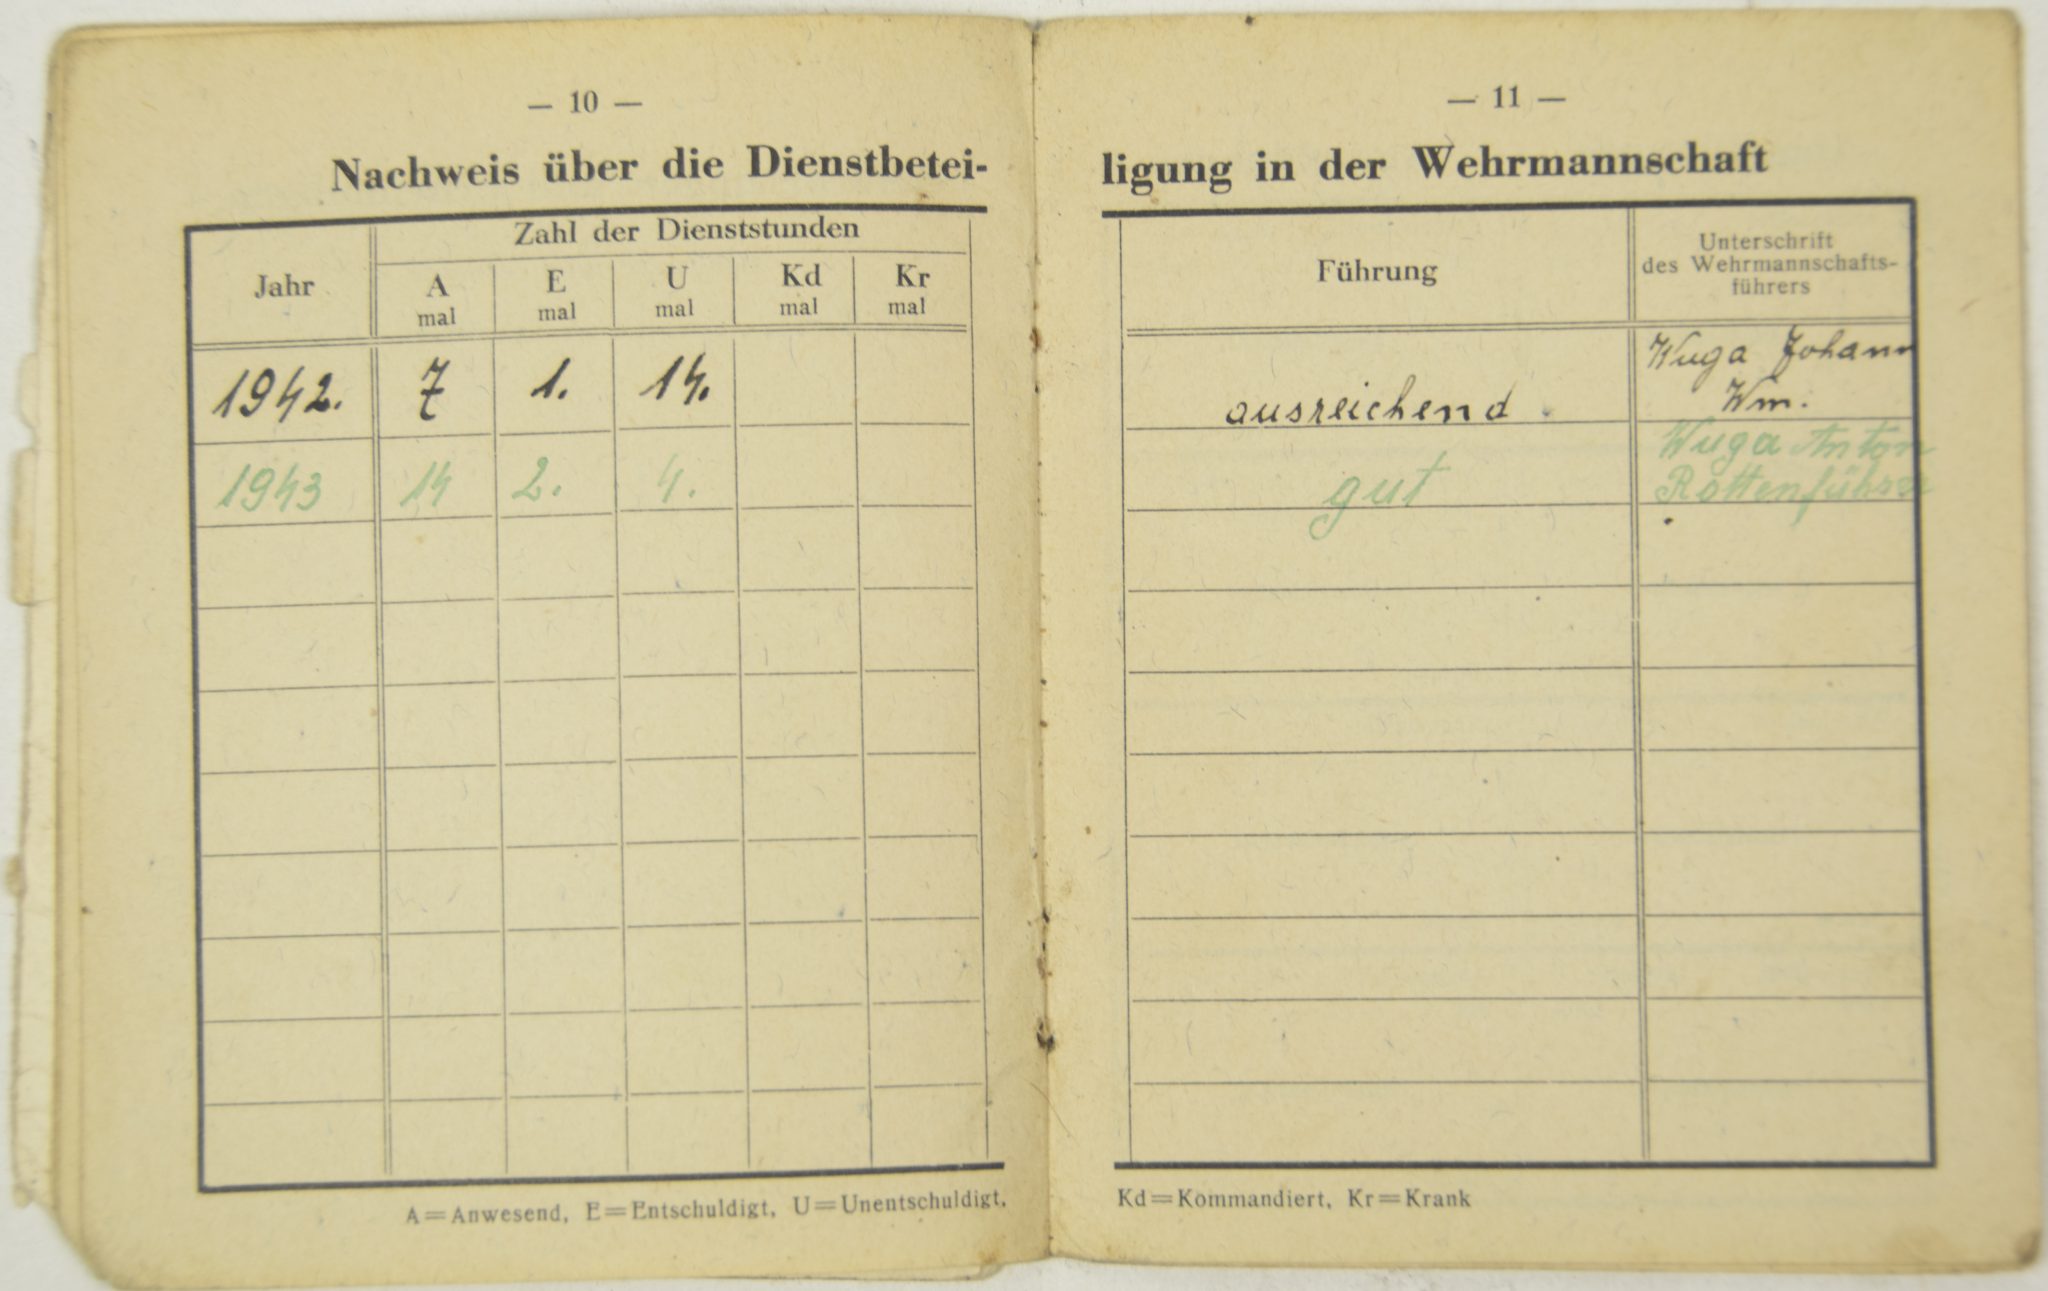 — 10 —
Nachweis über die Dienstbetei-
Jahr
Zahl der Dienststunden
A mal E mal U mal Kd mal Kr mal
1942. 7 1. 14.
1943 14 2. 4.
A=Anwesend, E=Entschuldigt, U=Unentschuldigt,
— 11 —
ligung in der Wehrmannschaft
Führung
Unterschrift
des Wehrmannschafts-
führers
Wuga Johann
ausreichend. Wm.
Wuga Anton
gut Rottenführer
Kd=Kommandiert, Kr=Krank